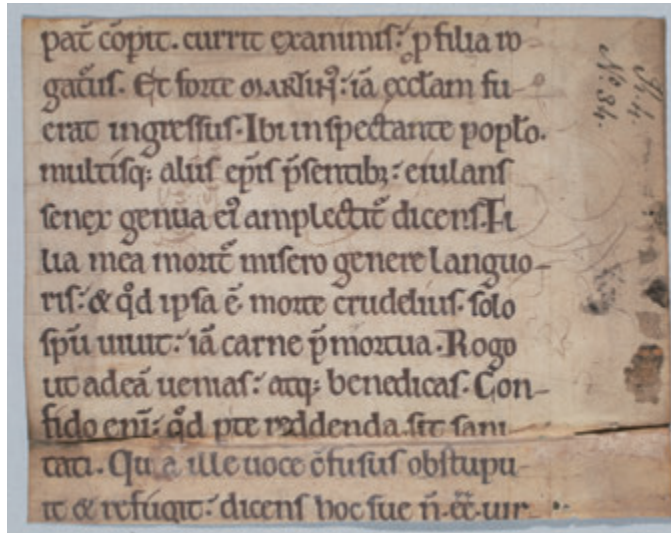 pat̄ cōpit. currit exanimis: p filia ro-
gatus. Et forte MARTIN᷒: iā eccłam fu-
erat ingressus. Ibi inspectante popło.
multisq; aliis ep̄is p̄sentib;: eiulans
senex genua ei᷒ amplectit̄ dicens. Fi
lia mea morit̄ misero genere languo-
ris: & qd̄ ipsa ē morte crudelius. solo
sp̄u uiuit: iā carne p̄mortua. Rogo
ut adeā uenias: atq; benedicas. Con-
fido eni̅: qd̄ pte reddenda sit sani
tati. Qua ille uoce c̄fusus obstupu-
it & refugit: dicens hoc sue n̄ eē uir
No. 34.